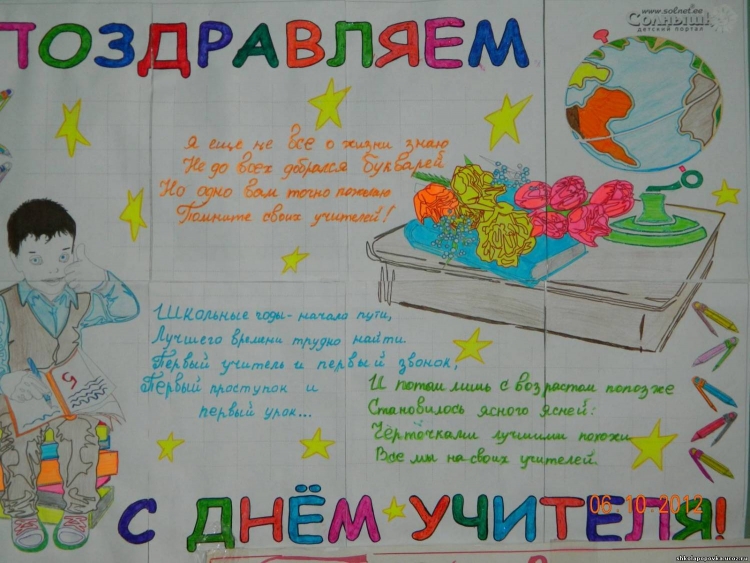 www.solnet.ee
Солнышко
детский портал
ПОЗДРАВЛЯЕМ
Я еще не все о жизни знаю
Не до всех добрался Букварей
Но одно вам точно пожелаю
Помните своих учителей!
Школьные годы - начало пути,
Лучшего времени трудно найти.
Первый учитель и первый звонок,
Первый проступок и
первый урок...
И потом лишь с возрастом попозже
Становилось ясного ясней:
Чёрточками лучшими похожи
Все мы на своих учителей.
5
С ДНЁМ УЧИТЕЛЯ!
06.10.2012
shkolapopovka.ucoz.ru